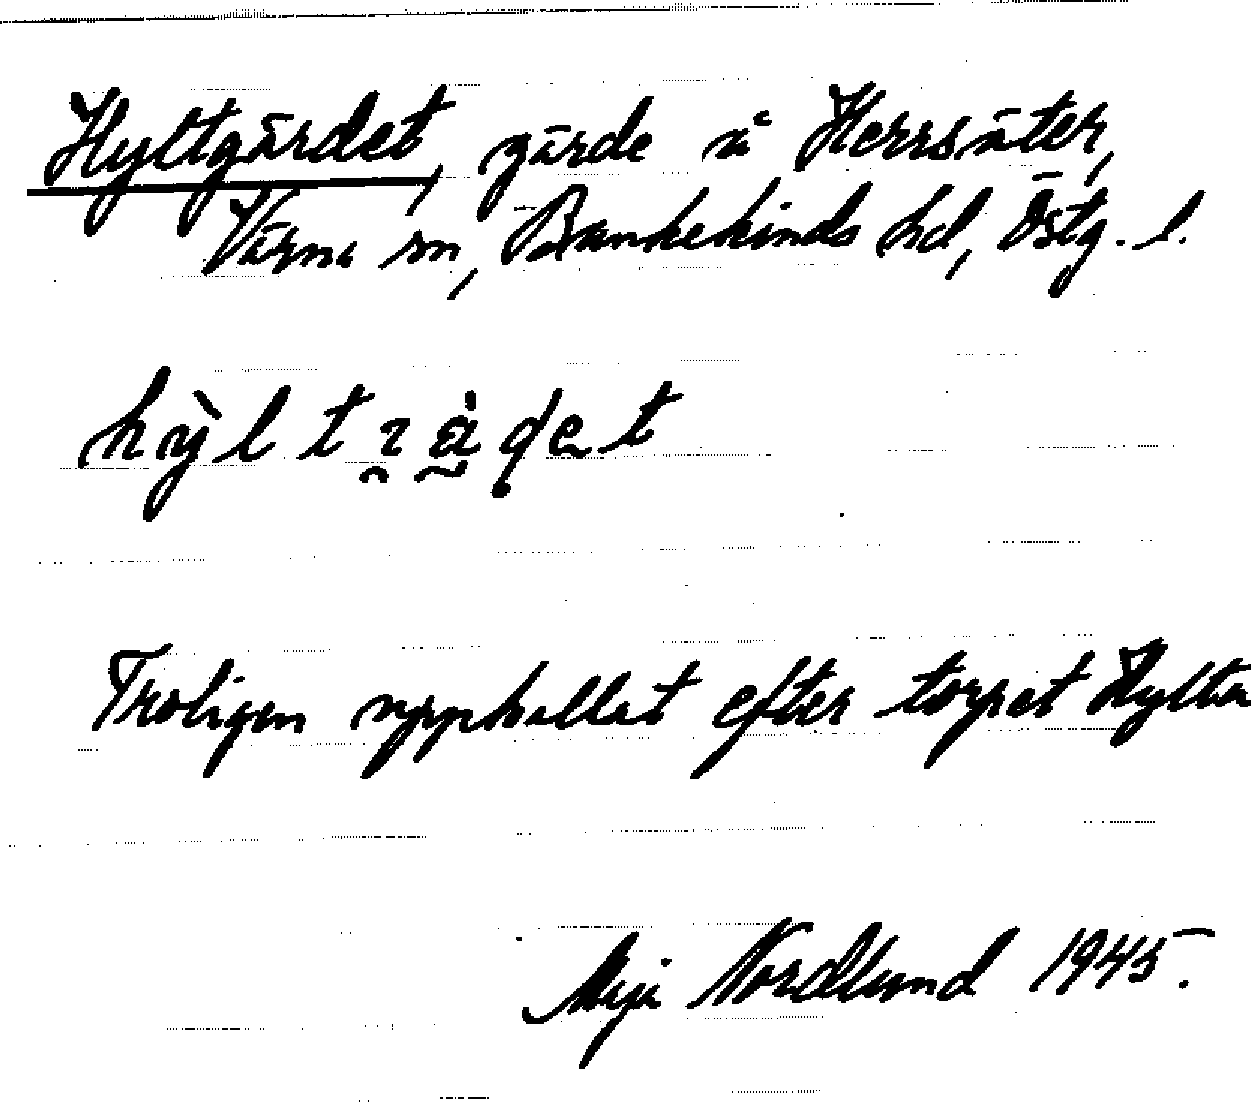 Hyltgärdet, gärde å Hersäter,
Värna sn, Bankekinds hd, Östg. l.
Troligen uppkallat efter torpet Hylta
Nordlund 1945.